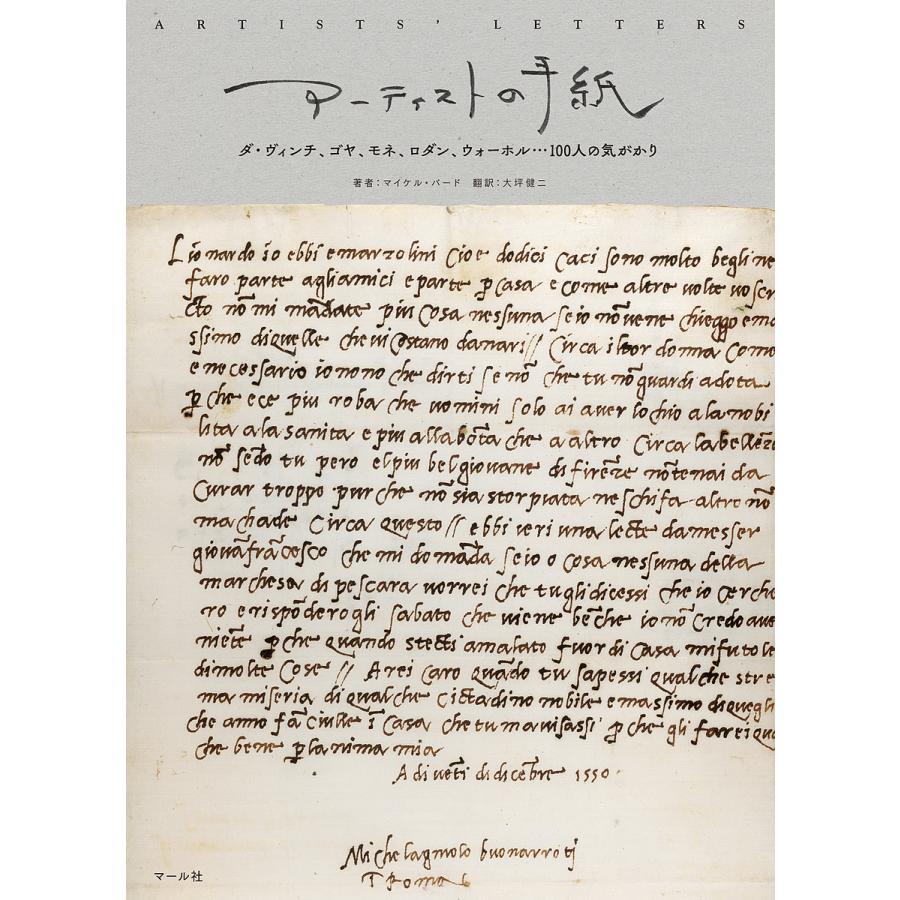 ARTISTS' LETTERS
アーティストの手紙
ダ・ヴィンチ、ゴヤ、モネ、ロダン、ウォーホル…100人の気がかり
著者：マイケル・バード　翻訳：大坪健二
Lionardo io ebbi e marzolini cioe dodici caci sono molto begli ne
faro parte agli amici e parte p casa e come altre volte vo scri
cto nō mi mādate piu cosa nessuna se io nō ve ne chieggo e ma
ssimo di quelle che vi costano danari // Circa il tor donna como
e necessario io no no che dirti se nō che tu nō guardi a dota
p che e c'e piu roba che uomini solo ai aver lochio a la nobi
lita a la sanita e piu alla bōta che a altro Circa la belleza
nō sēdo tu pero el piu bel giovane di firēze nō te n ai da
curar troppo pur che nō sia storpiata ne schifa altro nō
m achade Circa questo // ebbi ieri una lecte da messer
giovāfrācesco che mi domāda se io o cosa nessuna della
marchesa di pescara vorrei che tu gli dicessi che io cerche
ro e rispōderogli sabato che viene bēche io nō credo ave
niēte p che quando stecti amalato fuor di casa mi fu tole
di molte cose // Arei caro quādo tu sapessi qualche stre
ma miseria di qualche cictadino nobile e massimo di quegli
che anno fāciulle ī casa che tu m avisassi p che gli farei qua
che bene p l anima mia
A di vēti di dicēbre 1550
Michelagniolo buonarroti
ī Roma
マール社